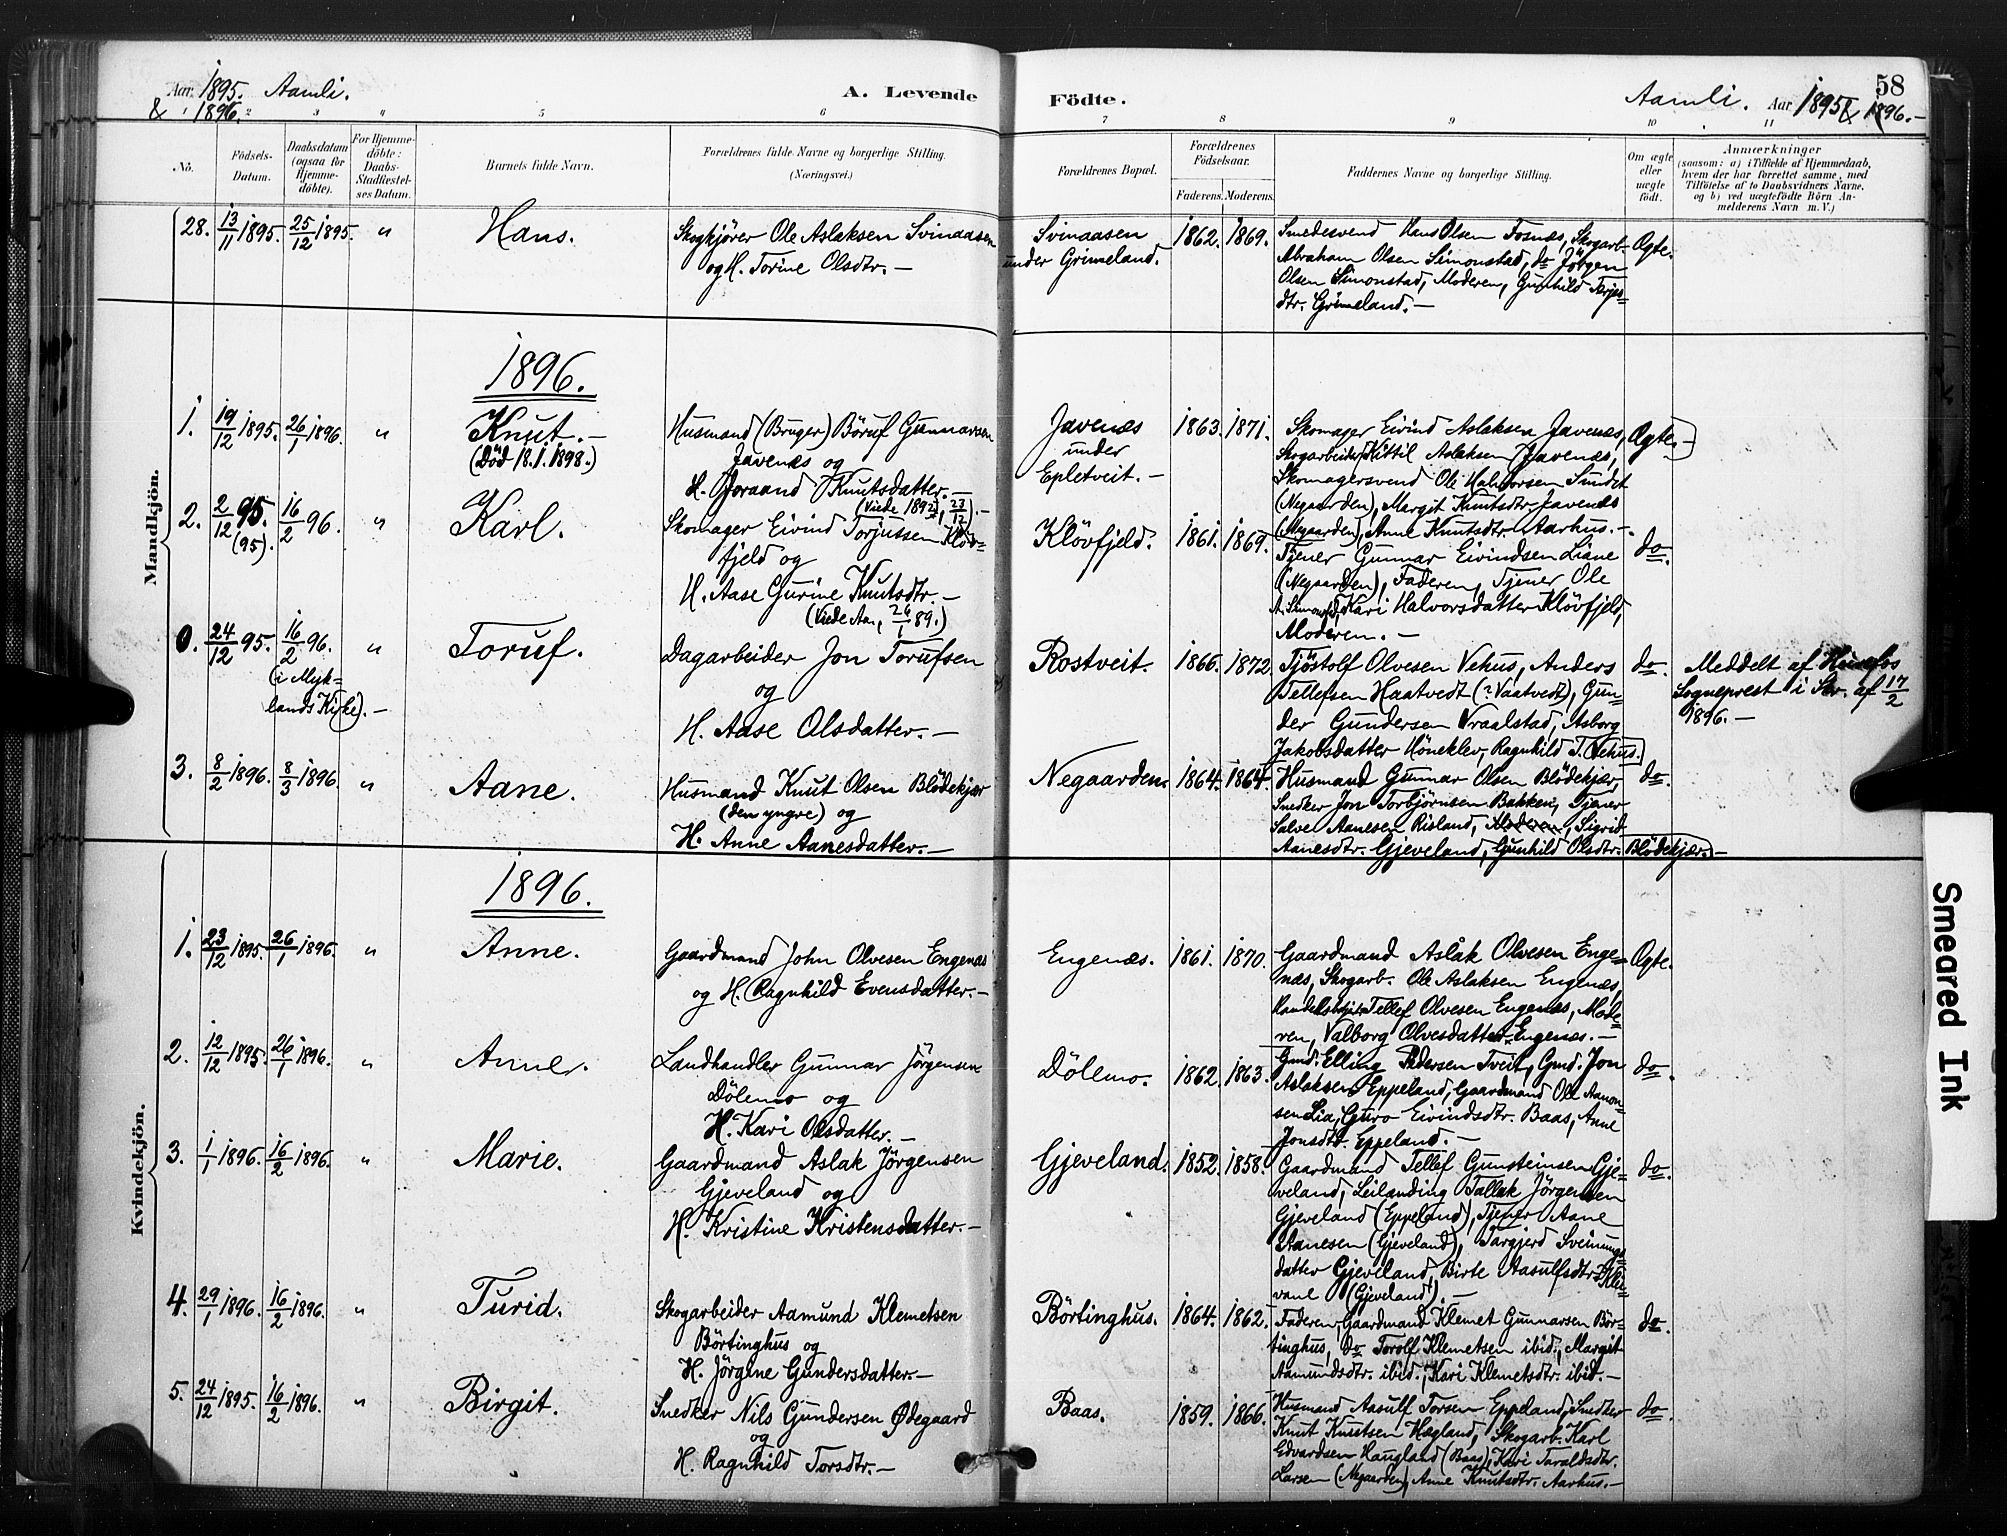 Aar 1895. Aamli. A. Levende Födte. Aamli. Aar 1895 & 1896.- 58
& 1896.
1 2 3 4 5 6 7 8 9 10 11
No.
Födsels-
Datum.
Daabsdatum
(ogsaa for
Hjemme-
döbte).
For Hjemme-
döbte:
Daabs-
Stadfæstel-
ses Datum.
Barnets fulde Navn.
Forældrenes fulde Navne og borgerlige Stilling.
(Næringsvei.)
Forældrenes Bopæl.
Forældrenes
Födselsaar.
Faderens. Moderens.
Faddernes Navne og borgerlige Stilling.
Om ægte
eller
uægte
født.
Anmærkninger
(saasom: a) i Tilfælde af Hjemmedaab,
hvem der har forrettet samme, med
Tilføielse af to Daabsvidners Navne,
og b) ved uægtefødte Börn An-
melderens Navn m. V.)
Mandkjön.
28. 13/11 1895. 25/12 1895. " Hans.
Skogkjörer Ole Aslaksen Svinaasen
og H. Torine Olsdtr. —
Svinaasen
under Grimeland.
1862. 1869.
Smedesvend Hans Olsen Fosnæs, Skogarb.
Abraham Olsen Simonstad, do Jörgen
Olsen Simonstad, Moderen, Gunhild Terjes-
dtr. Grimeland. —
Ægte.
1896.
1. 19/12 1895. 26/1 1896. " Knut. —
(Död 18.1.1898.)
Husmand (Bruger) Böruf Gunnarsen
Javenæs og
H. Joraand Knutsdatter. —
(Viede 1892, 23/12). —
Javenæs
under
Epletveit. —
1863. 1871.
Skomager Eivind Aslaksen Javenæs,
Skogarbeider Kittil Aslaksen Javenæs,
Skomagersvend Ole Halvorsen Sundet
(Negaarden), Margit Knutsdtr. Javenæs
(Negaarden), Anne Knutsdtr. Aarhus. —
Ægte —
2. 2/12 95. 16/2 96. " Karl.
(95).
Skomager Eivind Torjussen Klöv-
fjeld og
H. Aase Gurine Knutsdtr. —
(Viede Aam. 26/1 89.)
Klövfjeld.
1861. 1869.
Tjener Gunnar Eivindsen Liane
(Negaarden), Faderen, Tjener Ole
A. Simonstad, Kari Halvorsdatter Klövfjeld,
Moderen. —
do.
0. 24/12 95. 16/2 96. " Toruf.
(i Myk-
lands Kirke). —
Dagarbeider Jon Torufsen
og
H. Aase Olsdatter. —
Rostveit.
1866. 1872.
Tjöstolf Olvesen Vehus, Anders
Tellefsen Haatvedt (? Vaatvedt), Gun-
der Gundersen Vraalstad, Asborg
Jakobsdatter Höneklev, Ragnhild T. Vehus.
do.
Meddelt af
Sogneprest i Skr. af 17/2
1896. —
3. 8/2 1896. 8/3 1896. " Aane.
Husmand Knut Olsen Blödekjær
(den yngre) og
H. Anne Aanesdatter. —
Negaarden.
1864. 1864.
Husmand Gunnar Olsen Blödekjær,
Snedker Jon Torbjörnsen Bakken, Tjener
Salve Aanesen Risland, Moderen, Sigrid
Aanesdtr. Gjeveland, Gunhild Olsdtr. Blödekjær. —
do.
Kvindekjön.
1896.
1. 23/12 1895. 26/1 1896. " Anne.
Gaardmand John Olvesen Engenæs
og H. Ragnhild Evensdatter. —
Engenæs.
1861. 1870.
Gaardmand Aslak Olvesen Enge-
næs, Skogarb. Ole Aslaksen Engenæs,
Tellef Olvesen Engenæs, Mode-
ren, Valborg Olvesdatter Engenæs. —
Ægte.
2. 12/12 1895. 26/1 1896. " Anne.
Landhandler Gunnar Jörgensen
Dölemo og
H. Kari Olsdatter. —
Dölemo.
1862. 1863.
Gmd. Elling Pedersen Tveit, Gmd. Jon
Aslaksen Eppeland, Gaardmand Ole Aanon-
sen Lia, Guro Eivindsdtr. Baas, Anne
Jonsdtr. Eppeland. —
do.
3. 1/1 1896. 16/2 1896. " Marie.
Gaardmand Aslak Jörgensen
Gjeveland og
H. Kristine Kristensdatter. —
Gjeveland.
1852. 1858.
Gaardmand Tellef Gunsteinsen Gje-
veland, Leilending Tallak Jörgensen
Gjeveland (Eppeland), Tjener Aane
Aanesen (Gjeveland), Targjerd Sveinungs-
datter Gjeveland, Birte Aasulfsdtr. Kle-
vane (Gjeveland). —
do.
4. 29/1 1896. 16/2 1896. " Turid.
Skogarbeider Aamund Klemetsen
Börtinghus og
H. Jörgine Gundersdatter. —
Börtinghus.
1864. 1862.
Faderen, Gaardmand Klemet Gunnarsen Bör-
tinghus, do Torolf Klemetsen ibid., Margit
Aamundsdtr. ibid., Kari Klemetsdtr. ibid. —
do.
5. 24/12 1895. 16/2 1896. " Birgit.
Snedker Nils Gundersen Ødegaard
og
H. Ragnhild Torsdtr. —
Baas.
1859. 1866.
Husmand Aasulf Torsen Eppeland, Snedker
Knut Knutsen Hægland, Skogarb. Karl
Edvardsen Haugland (Baas), Kari Taraldsdtr.
Larsen (Negaarden), Anne Knutsdtr. Aarhus. —
do.
Smeared Ink